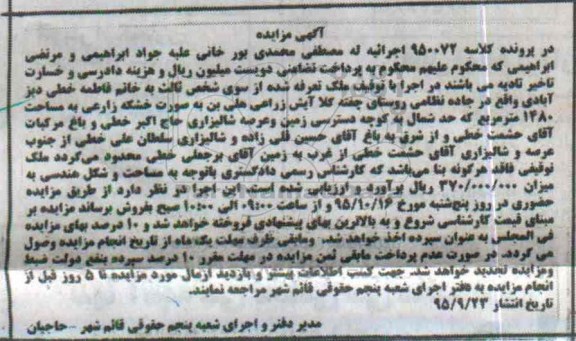 آگهی مزایده
در پرونده کلاسه ۹۵۰۰۷۲ اجرائیه له مصطفی محمدی پور خانی علیه جواد ابراهیمی و مرتضی
ابراهیمی که محکوم علیهم محکوم به پرداخت تضامنی دویست میلیون ریال و هزینه دادرسی و خسارت
تاخیر تادیه می باشند در اجرا با توقیف ملک تعرفه شده از سوی شخص ثالث به خانم فاطمه خطی دیز
آبادی واقع در جاده نظامی روستای چفته کلا آیش زراعی ملی بن به صورت خشکه زارعی به مساحت
۱۴۸۰ مترمربع که حد شمال به کوچه دسترسی زمین وعرصه شالیزاری حاج اکبر خطی و باغ مرکبات
آقای حشمت خطی و از شرق به باغ آقای حسین قلی زاده و شالیزاری سلطان علی خطی از جنوب
عرصه و شالیزاری آقای حشمت خطی از غرب به زمین آقای برجعلی خطی محدود می‌گردد ملک
توقیفی فاقد هرگونه بنا می‌باشد که کارشناس رسمی دادگستری باتوجه به مساحت و شکل هندسی به
میزان ۳۷۰/۰۰۰/۰۰۰ ریال برآورد و ارزیابی شده است. این اجرا در نظر دارد از طریق مزایده
حضوری در روز پنج‌شنبه مورخ ۹۵/۱۰/۱۶ و از ساعت ۰۹:۰۰ الی ۱۰:۰۰ صبح بفروش برساند مزایده بر
مبنای قیمت کارشناسی شروع و به بالاترین بهای پیشنهادی فروخته خواهد شد و ۱۰ درصد بهای مزایده
فی المجلس به عنوان سپرده اخذ خواهد شد. ومابقی ظرف مهلت یک ماه از تاریخ انجام مزایده وصول
می گردد. در صورت عدم پرداخت مابقی ثمن مزایده در مهلت مقرر ۱۰ درصد سپرده بنفع دولت ضبط
ومزایده تجدید خواهد شد. جهت کسب اطلاعات بیشتر و بازدید ازمال مورد مزایده تا ۵ روز قبل از
انجام مزایده به دفتر اجرای شعبه پنجم حقوقی قائم شهر مراجعه نمایند.
تاریخ انتشار ۹۵/۹/۲۳
مدیر دفتر و اجرای شعبه پنجم حقوقی قائم شهر - حاجیان